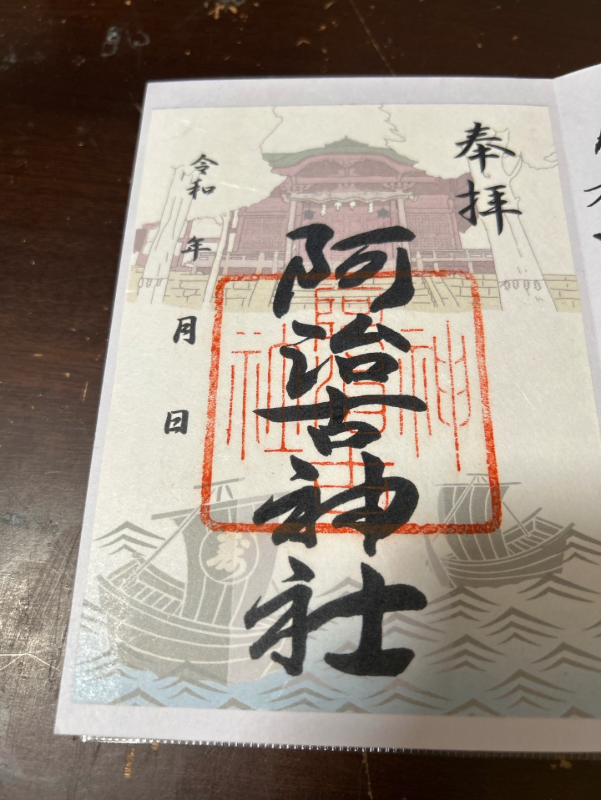 奉拝
阿治古神社
令和　年
月
日
寿